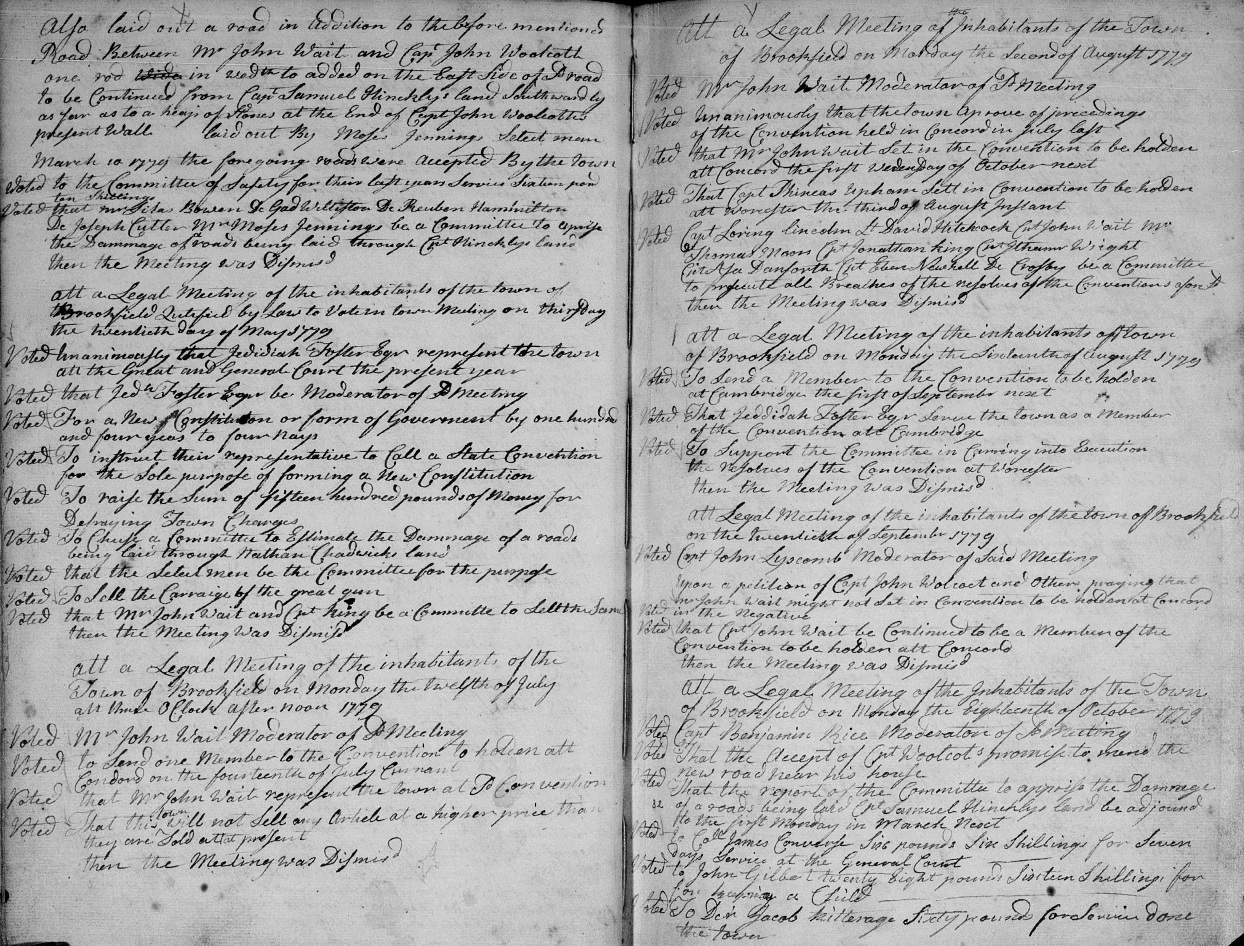 Also laid out a road in addition to the before mentioned
Road Between Mr John Wait and Capt John Woolcott
one rod wide in wedth to added on the East Side of Sd road
to be Continued from Capt Samuel Hinckly's land Southwardly
as far as to a heap of Stones at the End of Capt John Woolcotts
present Wall laid out By Moses Jennings Select man
March 10 1779 the foregoing roads were accepted By the town
Voted to the Committee of Safety for their last years Service Sixteen pound
ten Shillings
Voted that Mr Silas Bowen De Gad Williston De Reuben Hamminlton
De Joseph Cutler Mr Moses Jennings be a Committee to aprise
the Dammage of roads being laid through Cpt Hincklys land
then the Meeting was Dismisd
att a Legal Meeting of the inhabitants of the town of
Brookfield Qutefied by Law to Vote in town Meeting on thirsday
the twentieth day of May 1779
Voted Unanimously that Jedidiah Foster Eqr represent the town
att the Great and General Court the present year
Voted that Jeda Foster Eqr be Moderator of Sd Meeting
Voted For a New Constitution or form of Goverment by one hundred
and four yeas to four Nays
Voted To instruct their representative to Call a State Convention
for the Sole purpose of forming a New Constitution
Voted To raise the Sum of fifteen hundred pounds of Money for
Defraying Town Charges
Voted To Chuse a Committee to Estimate the Dammage of a road
being laid through Nathan Chadwicks land
Voted that the Select men be the Committee for the purpose
Voted To Sell the Carraige of the great gun
Voted that Mr John Wait and Cpt King be a Committe to Sell the Same
then the Meeting was Dismisd
att a Legal Meeting of the inhabitants of the
Town of Brookfield on Monday the twelfth of July
att three O Clock after noon 1779
Voted Mr John Wait Moderator of Sd Meeting
Voted to Send one Member to the Convention to holden att
Concord on the fourteenth of July Currant
Voted that Mr John Wait represent the town at Sd Convention
Voted That the town will not Sell any Article at a higher price than
they are Sold at at present
then the Meeting was Dismisd
Att a Legal Meeting of the Inhabitants of the Town
of Brookfield on Monday the Second of August 1779
Voted Mr John Wait Moderator of Sd Meeting
Voted Unanimously that the town Aprove of preceedings
of the Convention held in Concord in July last
Voted that Mr John Wait Set in the Convention to be holden
att Concord the first Wedensday of October next
Voted That Capt Phineas Upham Sett in Convention to be holden
att Worcester the third of August Instant
Voted Capt Loring Lincoln Lt David Hitchcock Cpt John Wait Mr
Thomas Moors Cpt Jonathan King Cpt Ithamr Wright
Cpt Asa Danforth Cpt Eben Newhell De Crosby be a Committee
to prosecute all Breaches of the resolves of the Conventions afore Sd
then the Meeting was Dismisd
att a Legal Meeting of the inhabitants of town
of Brookfield on Monday the Sixteenth of August 1779
Voted To Send a Member to the Convention to be holden
at Cambridge the first of September next
Voted That Jeddidah Foster Eqr Serve the town as a Member
of the Convention att Cambridge
Voted To Support the Committee in Carring into Execution
the resolves of the Convention at Worcester
then the Meeting was Dismisd
att Legal Meeting of the inhabitants of the town of Brookfield
on the twentieth of September 1779
Voted Cpt John Lyscomb Moderator of Said Meeting
upon a petition of Capt John Wolcoct and Others praying that
Mr John Wait might not Set in Convention to be holden at Concord
Voted in the Negative
Voted that Cpt John Wait be Continued to be a Member of the
Convention to be holden att Concord
then the Meeting was Dismisd
Att a Legal Meeting of the Inhabitants of the Town
of Brookfield on Monday the Eighteenth of October 1779
Voted Capt Benjamin Rice Moderator of Sd Meeting
Voted That the Accept of Cpt Woolcot's promise to mend the
new road near his house
Voted That the report of the Committee to apprise the Dammage
of a roads being laid Cpt Samuel Hincklys land be adjournd
to the first Monday in March Next
Voted To Coll James Converse Six pounds Six Shillings for Seven
days Service at the General Court
Voted to John Gilbert twenty Eight pounds Sixteen Shillings for
a Child
Voted To Dr Jacob Kitterage Sixty pounds for Service done
the town